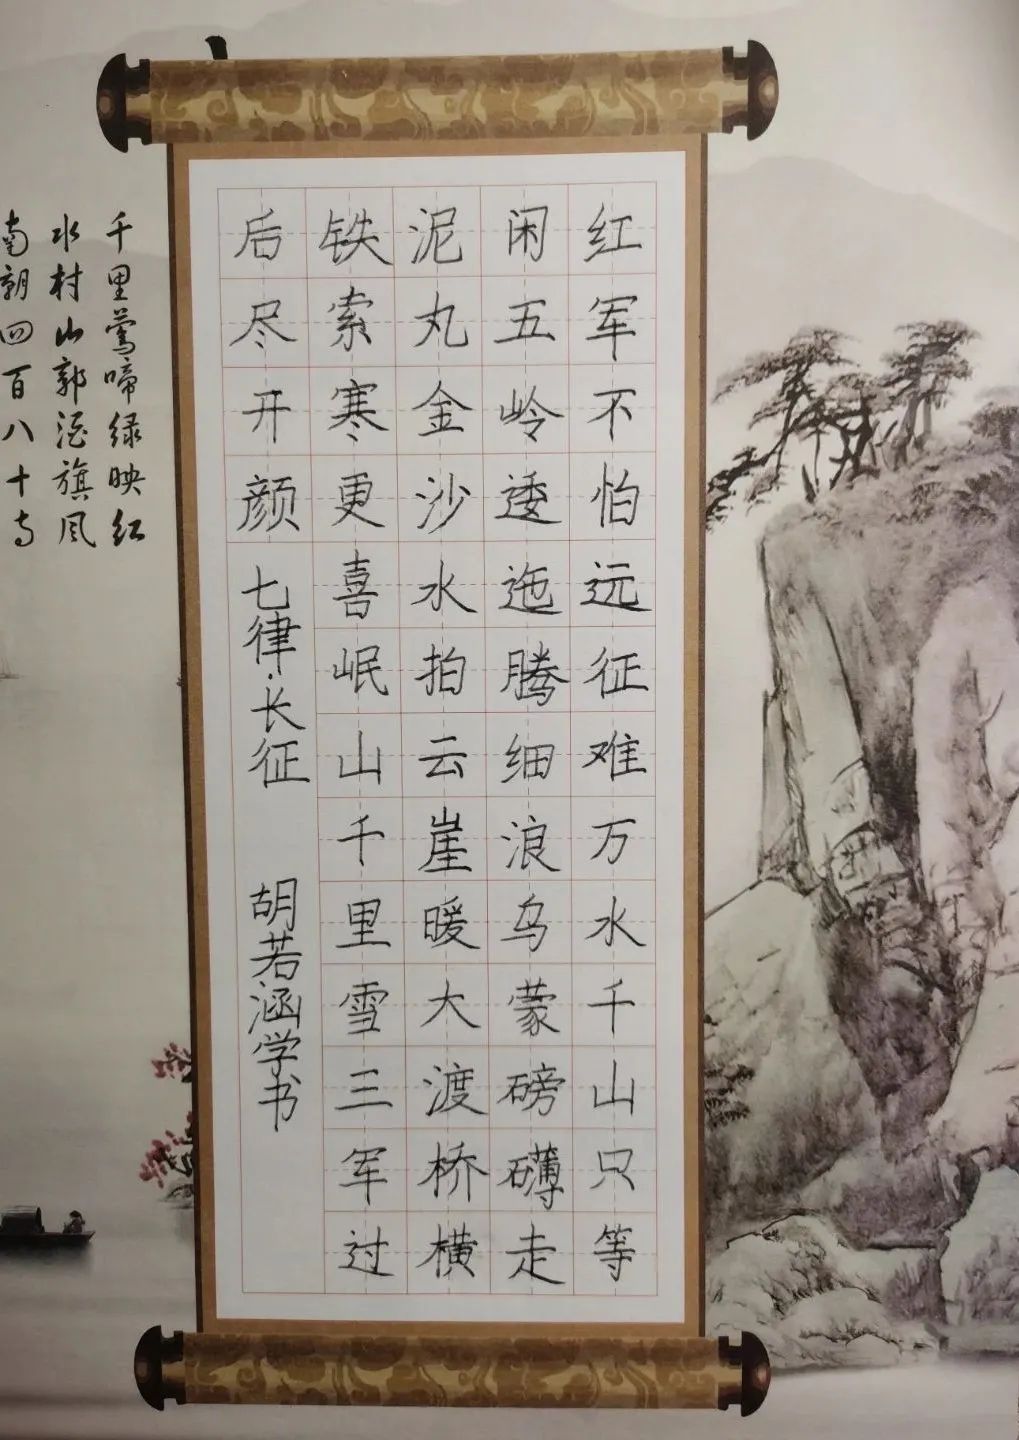 红军不怕远征难万水千山只等
闲五岭逶迤腾细浪乌蒙磅礴走
泥丸金沙水拍云崖暖大渡桥横
铁索寒更喜岷山千里雪三军过
后尽开颜
七律·长征
胡若涵学书
千里莺啼绿映红
水村山郭酒旗风
南朝四百八十寺